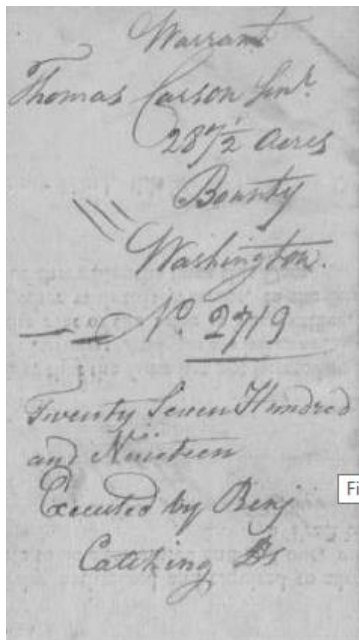 Warrant
Thomas Carson Senr.
287 1/2 Acres
Bounty
Washington.
No. 2719
Twenty Seven Hundred
and Nineteen
Executed by Benj
Catching DS
Fi